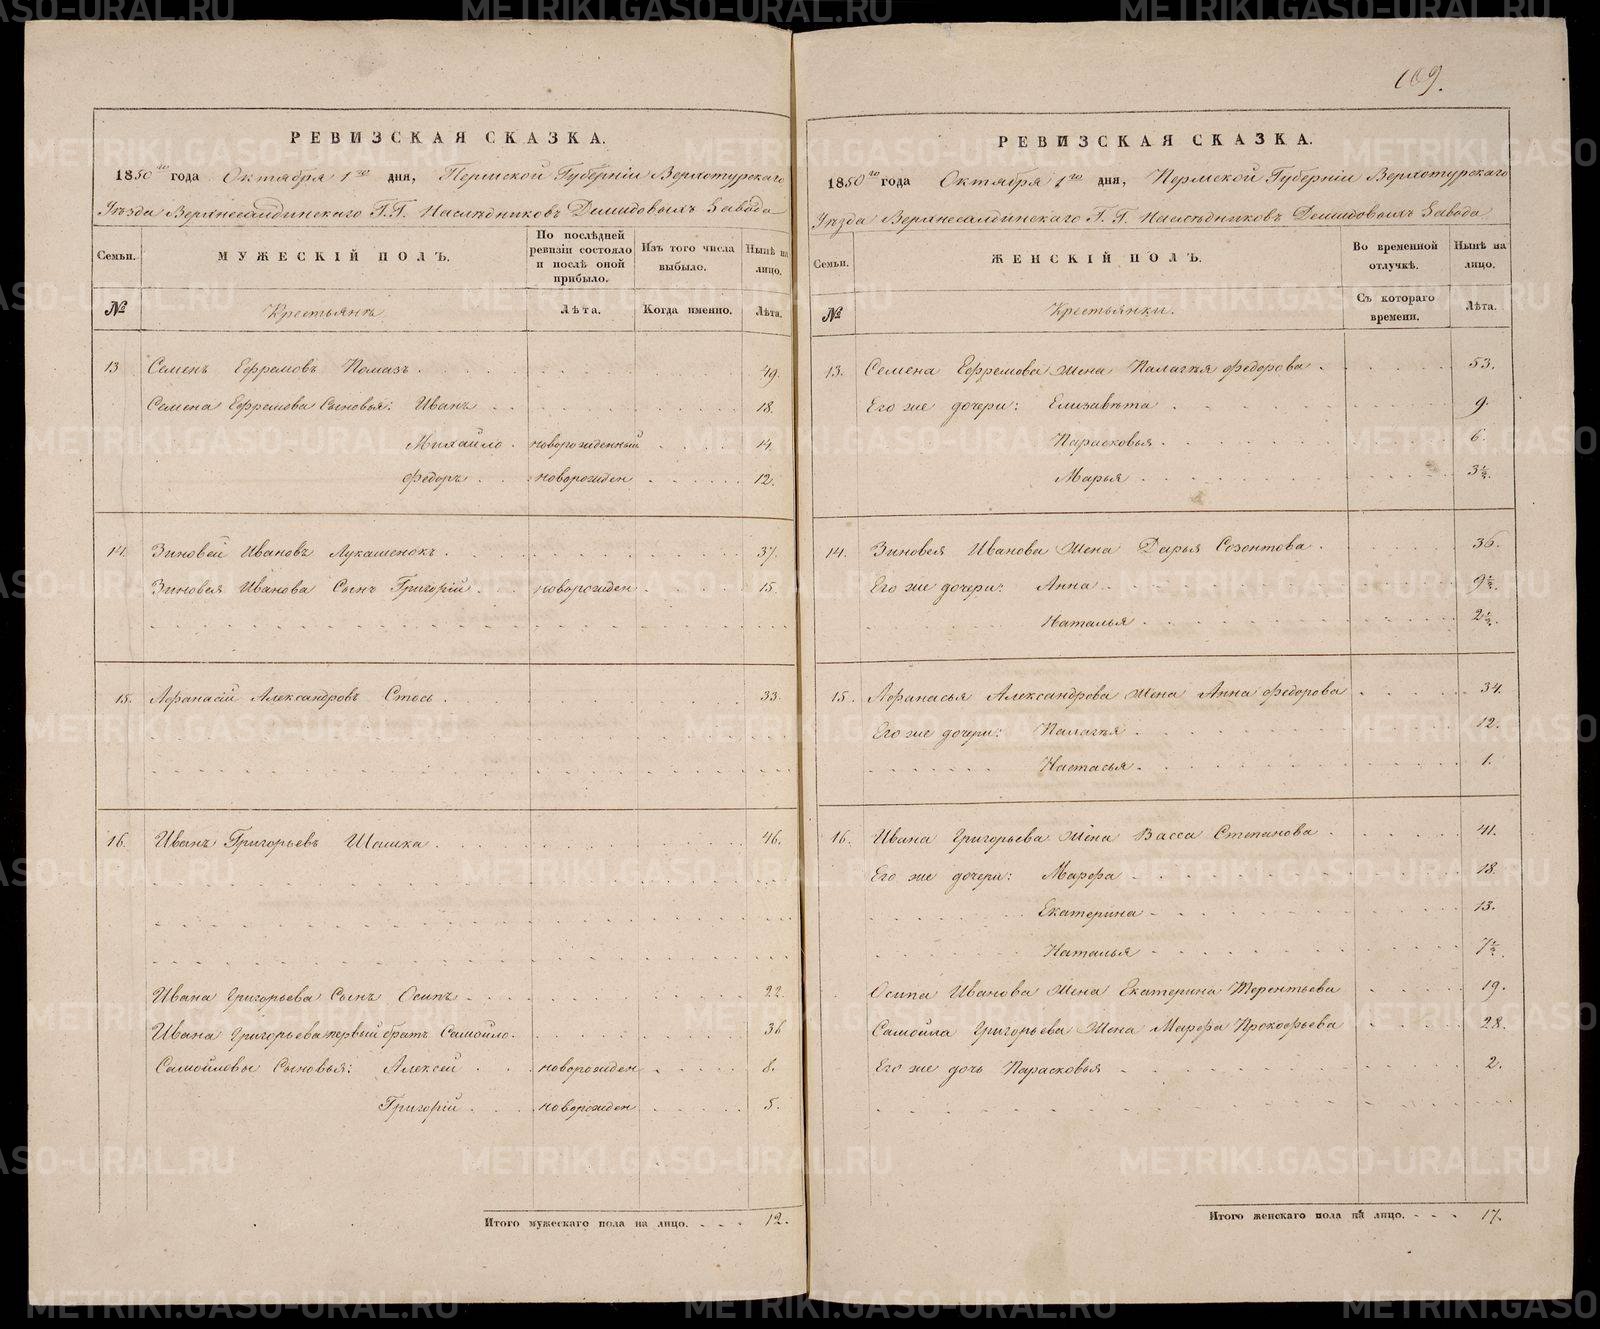 РЕВИЗСКАЯ СКАЗКА.
1850го года Октября 1го дня, Пермской Губерніи Верхотурскаго
Уѣзда Верхнесалдинскаго Г.Г. Наслѣдниковъ Демидовыхъ Завода
Семьи.
МУЖЕСКІЙ ПОЛЪ.
По послѣдней ревизіи состояло и послѣ оной прибыло.
Изъ того числа выбыло.
Нынѣ на лицо.
№
Крестьянъ
Лѣта.
Когда именно.
Лѣта.
13 Семенъ Ефремовъ Помазъ 49.
Семена Ефремова Сыновья: Иванъ 18.
Михайло новорожденный 14.
Федоръ новорожден 12.
14. Зиновей Ивановъ Лукашенокъ 37.
Зиновея Иванова Сынъ Григорій новорожден 15.
15. Афанасій Александровъ Стось 33.
16. Иванъ Григорьевъ Шашка 46.
Ивана Григорьева Сынъ Осипъ 22.
Ивана Григорьева первый братъ Самойло. 36
Самойловы Сыновья: Алексей новорожден 8.
Григорій новорожден 5.
Итого мужескаго пола на лицо. 12.
109.
РЕВИЗСКАЯ СКАЗКА.
1850го года Октября 1го дня, Пермской Губерніи Верхотурскаго
Уѣзда Верхнесалдинскаго Г.Г. Наслѣдниковъ Демидовыхъ Завода.
Семьи.
ЖЕНСКІЙ ПОЛЪ.
Во временной отлучкѣ.
Нынѣ на лицо.
№
Крестьянки.
Съ котораго времени.
Лѣта.
13. Семена Ефремова жена Палагѣя Федорова 53.
Его же дочери: Елизавѣта 9.
Парасковья 6.
Марья 3½.
14. Зиновея Иванова жена Дарья Созонтова 36.
Его же дочери: Анна 9½.
Наталья 2½.
15. Афанасья Александрова жена Анна Федорова 34.
Его же дочери: Палагѣя 12.
Настасья 1.
16. Ивана Григорьева жена Васса Степанова 41.
Его же дочери: Марфа 18.
Екатерина 13.
Наталья 7½.
Осипа Иванова жена Екатерина Терентьева 19.
Самойла Григорьева жена Марфа Прокофьева 28.
Его же дочь Парасковья 2.
Итого женскаго пола на лицо. 17.
METRIKI.GASO-URAL.RU